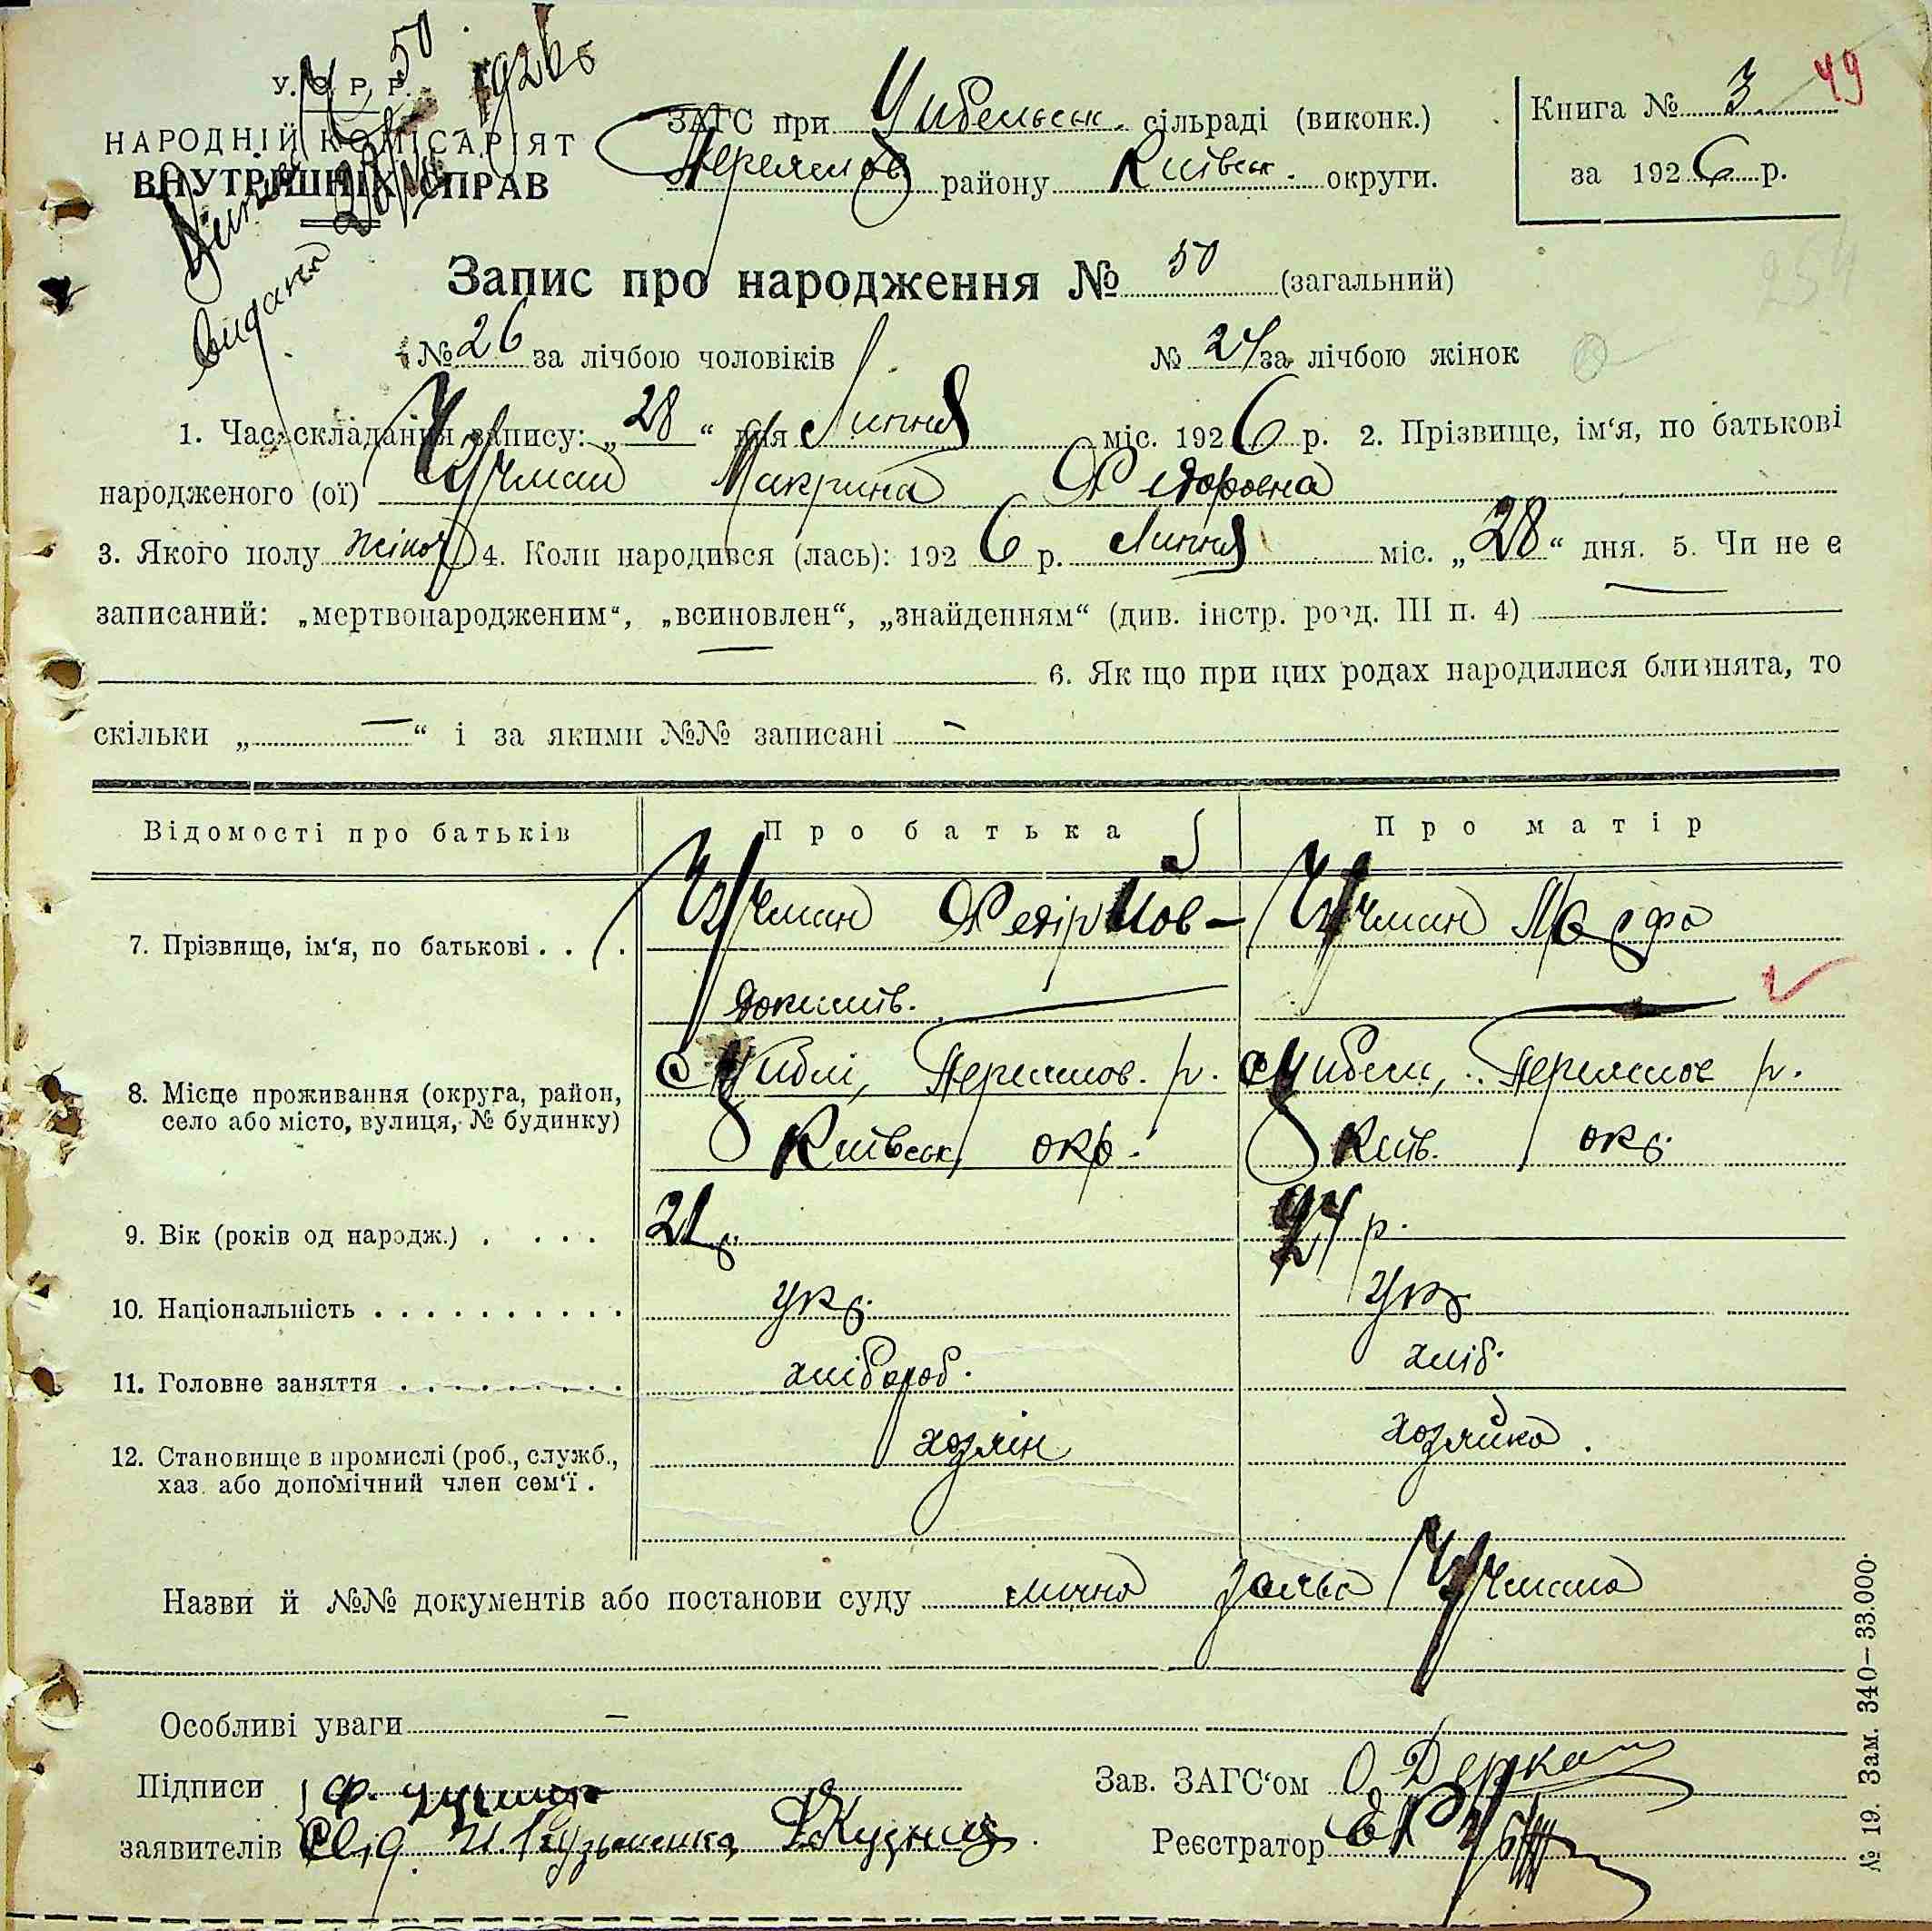 У. С. Р. Р.
НАРОДНІЙ КОМІСАРІЯТ
ВНУТРІШНІХ СПРАВ
50
1926 р
видана
ЗАГС при Цибльськ. сільраді (виконк.)
Переяслов. району Київськ. округи.
Книга № 3
49
за 1926 р.
Запис про народження № 50 (загальний)
№ 26 за лічбою чоловіків № 24 за лічбою жінок
1. Час складання запису: „28“ дня Липня міс. 1926 р. 2. Прізвище, ім‘я, по батькові
народженого (ої) Чучман Макрина Федоровна
3. Якого полу жіноч 4. Коли народився (лась): 1926 р. Липня міс. „28“ дня. 5. Чи не є
записаний: „мертвонародженим“, „всиновлен“, „знайденням“ (див. інстр. розд. III п. 4) —
— 6. Як що при цих родах народилися близнята, то
скільки „—“ і за якими №№ записані —
Відомості про батьків Про батька Про матір
7. Прізвище, ім‘я, по батькові . . . Чучман Федір Чучман
8. Місце проживання (округа, район, с Циблі, Переяслов. р. с Циблі, Переяслов р.
село або місто, вулиця, № будинку) Київськ окр. Київ. окр.
9. Вік (років од народж.) . . . . 21 р. 24 р.
10. Національність . . . . . . . . . . укр. укр
11. Головне заняття . . . . . . . . . хлібороб. хліб.
12. Становище в промислі (роб., служб., хозяїн хозяйка.
хаз. або допомічний член сем‘ї .
Назви й №№ документів або постанови суду лично заява Чучмана
Особливі уваги —
Підписи Ф. Чучман
Зав. ЗАГС‘ом О Деркач
заявителів Свід. И. Кузьменко,
Реєстратор
№ 19. Зам. 340—33.000.